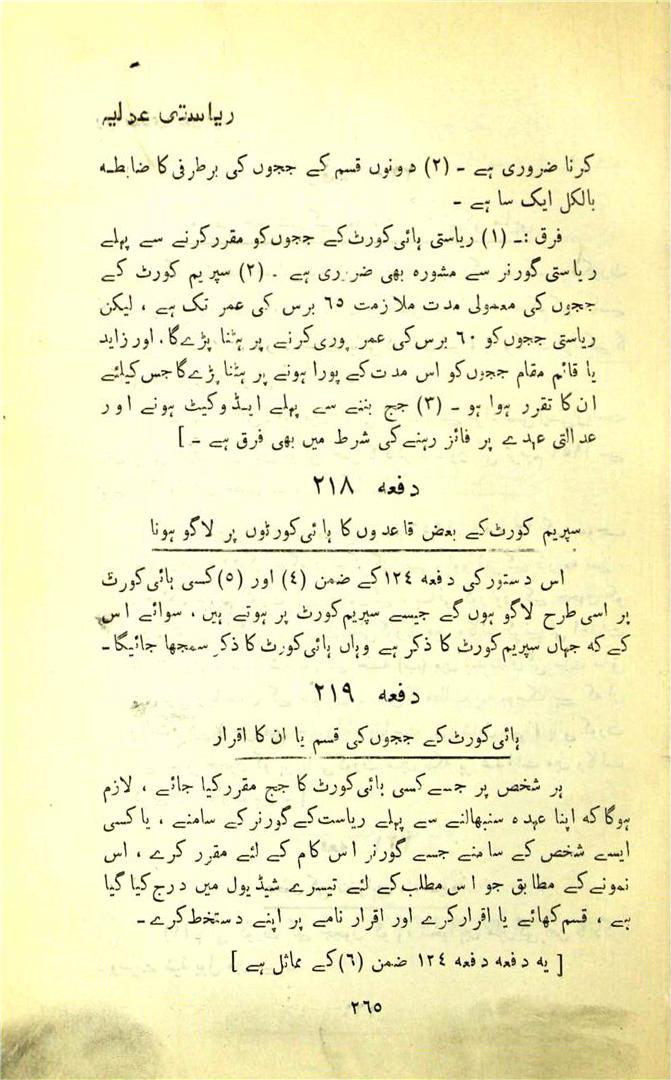 ریاستی عدلیہ
کرنا ضروری ہے ۔ (۲) دونوں قسم کے ججوں کی برطرفی کا ضابطہ
بالکل ایک سا ہے ۔
فرق :۔ (۱) ریاستی ہائی کورٹ کے ججوں کو مقرر کرنے سے پہلے
ریاستی گورنر سے مشورہ بھی ضروری ہے ۔ (۲) سپریم کورٹ کے
ججوں کی معمولی مدت ملازمت ٦٥ برس کی عمر تک ہے ، لیکن
ریاستی ججوں کو ٦٠ برس کی عمر پوری کرنے پر ہٹنا پڑے گا، اور زاید
یا قائم مقام ججوں کو اس مدت کے پورا ہونے پر ہٹنا پڑے گا جس کیلئے
ان کا تقرر ہوا ہو ۔ (۳) جج بننے سے پہلے ایڈوکیٹ ہونے اور
عدالتی عہدے پر فائز رہنے کی شرط میں بھی فرق ہے ۔ ]
دفعہ ۲۱۸
سپریم کورٹ کے بعض قاعدوں کا ہائی کورٹوں پر لاگو ہونا
اس دستور کی دفعہ ١٢٤ کے ضمن (٤) اور (٥) کسی ہائی کورٹ
پر اسی طرح لاگو ہوں گے جیسے سپریم کورٹ پر ہوتے ہیں ، سوائے اس
کے کہ جہاں سپریم کورٹ کا ذکر ہے وہاں ہائی کورٹ کا ذکر سمجھا جائیگا۔
دفعہ ۲۱۹
ہائی کورٹ کے ججوں کی قسم یا ان کا اقرار
ہر شخص پر جسے کسی ہائی کورٹ کا جج مقرر کیا جائے ، لازم
ہوگا کہ اپنا عہدہ سنبھالنے سے پہلے ریاست کے گورنر کے سامنے ، یا کسی
ایسے شخص کے سامنے جسے گورنر اس کام کے لئے مقرر کرے ، اس
نمونے کے مطابق جو اس مطلب کے لئے تیسرے شیڈیول میں درج کیا گیا
ہے ، قسم کھائے یا اقرار کرے اور اقرار نامے پر اپنے دستخط کرے ۔
[ یہ دفعہ دفعہ ١٢٤ ضمن (٦) کے مماثل ہے ]
٢٦٥